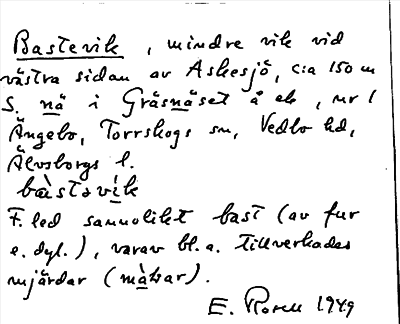 Bastevik, mindre vik vid
västra sidan av Askesjö, c:a 150 m
S. nä i Gräsnäset å ek, nr 1
Ängebo, Torrskogs sn, Vedbo hd,
Älvsborgs l.
bàstəvík
F. led sannolikt bast (av fur
e. dyl.), varav bl. a. tillverkades
mjärdar (màtar).
E. Rosell 1949